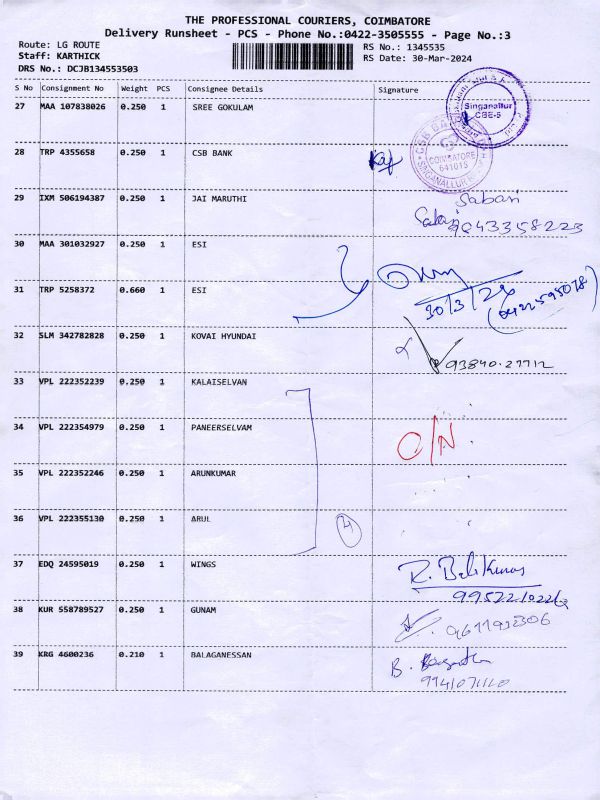 THE PROFESSIONAL COURIERS, COIMBATORE
Delivery Runsheet - PCS - Phone No.:0422-3505555 - Page No.:3
Route: LG ROUTE RS No.: 1345535
Staff: KARTHICK RS Date: 30-Mar-2024
DRS No.: DCJB134553503
S No Consignment No Weight PCS Consignee Details Signature
27 MAA 107838026 0.250 1 SREE GOKULAM
Singanallur
CBE-5
28 TRP 4355658 0.250 1 CSB BANK
CSB BANK
COIMBATORE
641015
SINGANALLUR
29 IXM 506194387 0.250 1 JAI MARUTHI
Sabari
9043358223
30 MAA 301032927 0.250 1 ESI
31 TRP 5258372 0.660 1 ESI
30/3/24
32 SLM 342782828 0.250 1 KOVAI HYUNDAI
93840-27712
33 VPL 222352239 0.250 1 KALAISELVAN
34 VPL 222354979 0.250 1 PANEERSELVAM
O/N
35 VPL 222352246 0.250 1 ARUNKUMAR
36 VPL 222355130 0.250 1 ARUL
4
37 EDQ 24595019 0.250 1 WINGS
R. Balakumar
38 KUR 558789527 0.250 1 GUNAM
39 KRG 4600236 0.210 1 BALAGANESSAN
B.